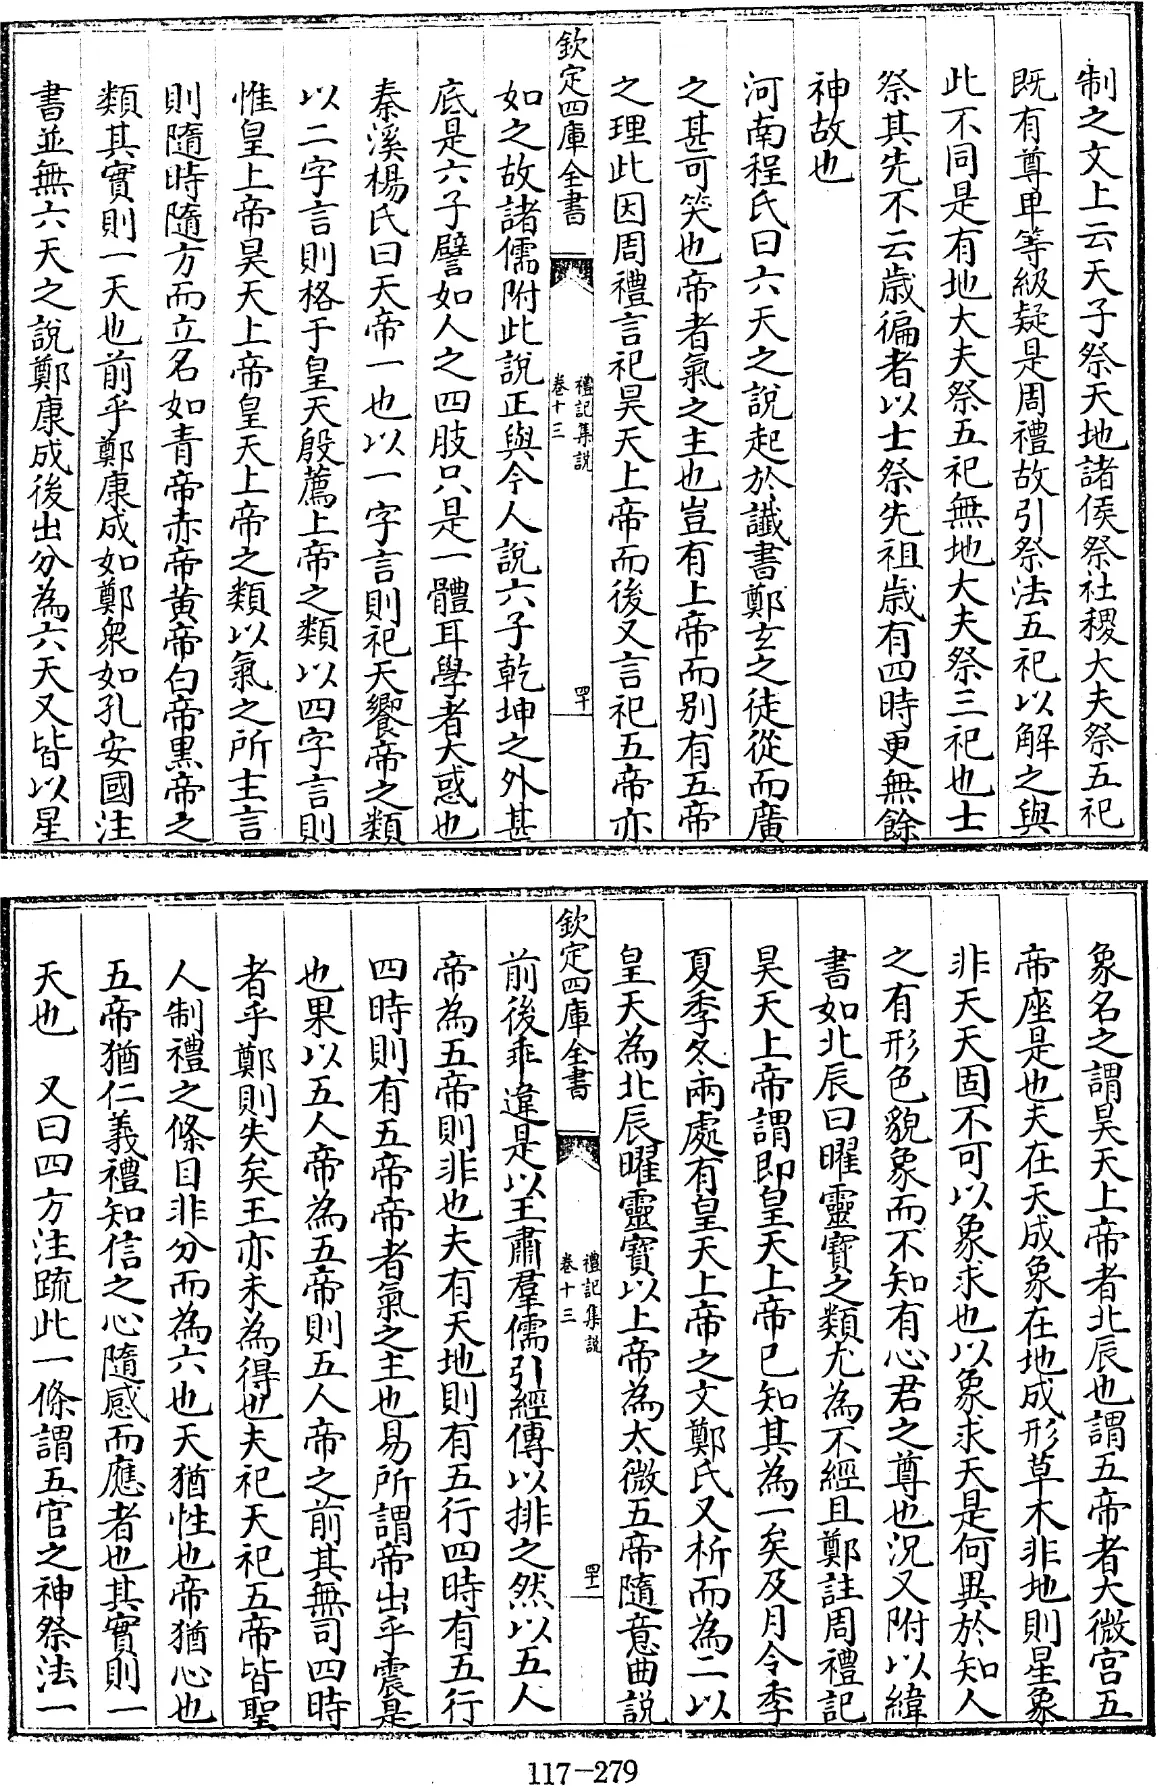 制之文上云天子祭天地諸侯祭社稷大夫祭五祀
既有尊卑等級疑是周禮故引祭法五祀以解之與
此不同是有地大夫祭五祀無地大夫祭三祀也士
祭其先不云歲徧者以士祭先祖歲有四時更無餘
神故也
河南程氏曰六天之說起於讖書鄭玄之徒從而廣
之甚可笑也帝者氣之主也豈有上帝而别有五帝
之理此因周禮言祀昊天上帝而後又言祀五帝亦
欽定四庫全書
禮記集說
卷十三
四十
如之故諸儒附此說正與今人說六子乾坤之外甚
底是六子譬如人之四肢只是一體耳學者大惑也
秦溪楊氏曰天帝一也以一字言則祀天饗帝之類
以二字言則格于皇天殷薦上帝之類以四字言則
惟皇上帝昊天上帝皇天上帝之類以氣之所主言
則隨時隨方而立名如青帝赤帝黄帝白帝黑帝之
類其實則一天也前乎鄭康成如鄭衆如孔安國注
書並無六天之說鄭康成後出分為六天又皆以星
象名之謂昊天上帝者北辰也謂五帝者大微宮五
帝座是也夫在天成象在地成形草木非地則星象
非天天固不可以象求也以象求天是何異於知人
之有形色貌象而不知有心君之尊也況又附以緯
書如北辰曰曜靈寶之類尤為不經且鄭註周禮記
昊天上帝謂即皇天上帝已知其為一矣及月令季
夏季冬兩處有皇天上帝之文鄭氏又析而為二以
皇天為北辰曜靈寶以上帝為太微五帝隨意曲説
欽定四庫全書
禮記集說
卷十三
四十一
前後乖違是以王肅羣儒引經傳以排之然以五人
帝為五帝則非也夫有天地則有五行四時有五行
四時則有五帝帝者氣之主也易所謂帝出乎震是
也果以五人帝為五帝則五人帝之前其無司四時
者乎鄭則失矣王亦未為得也夫祀天祀五帝皆聖
人制禮之條目非分而為六也天猶性也帝猶心也
五帝猶仁義禮知信之心隨感而應者也其實則一
天也 又曰四方注疏此一條謂五官之神祭法一
117-279